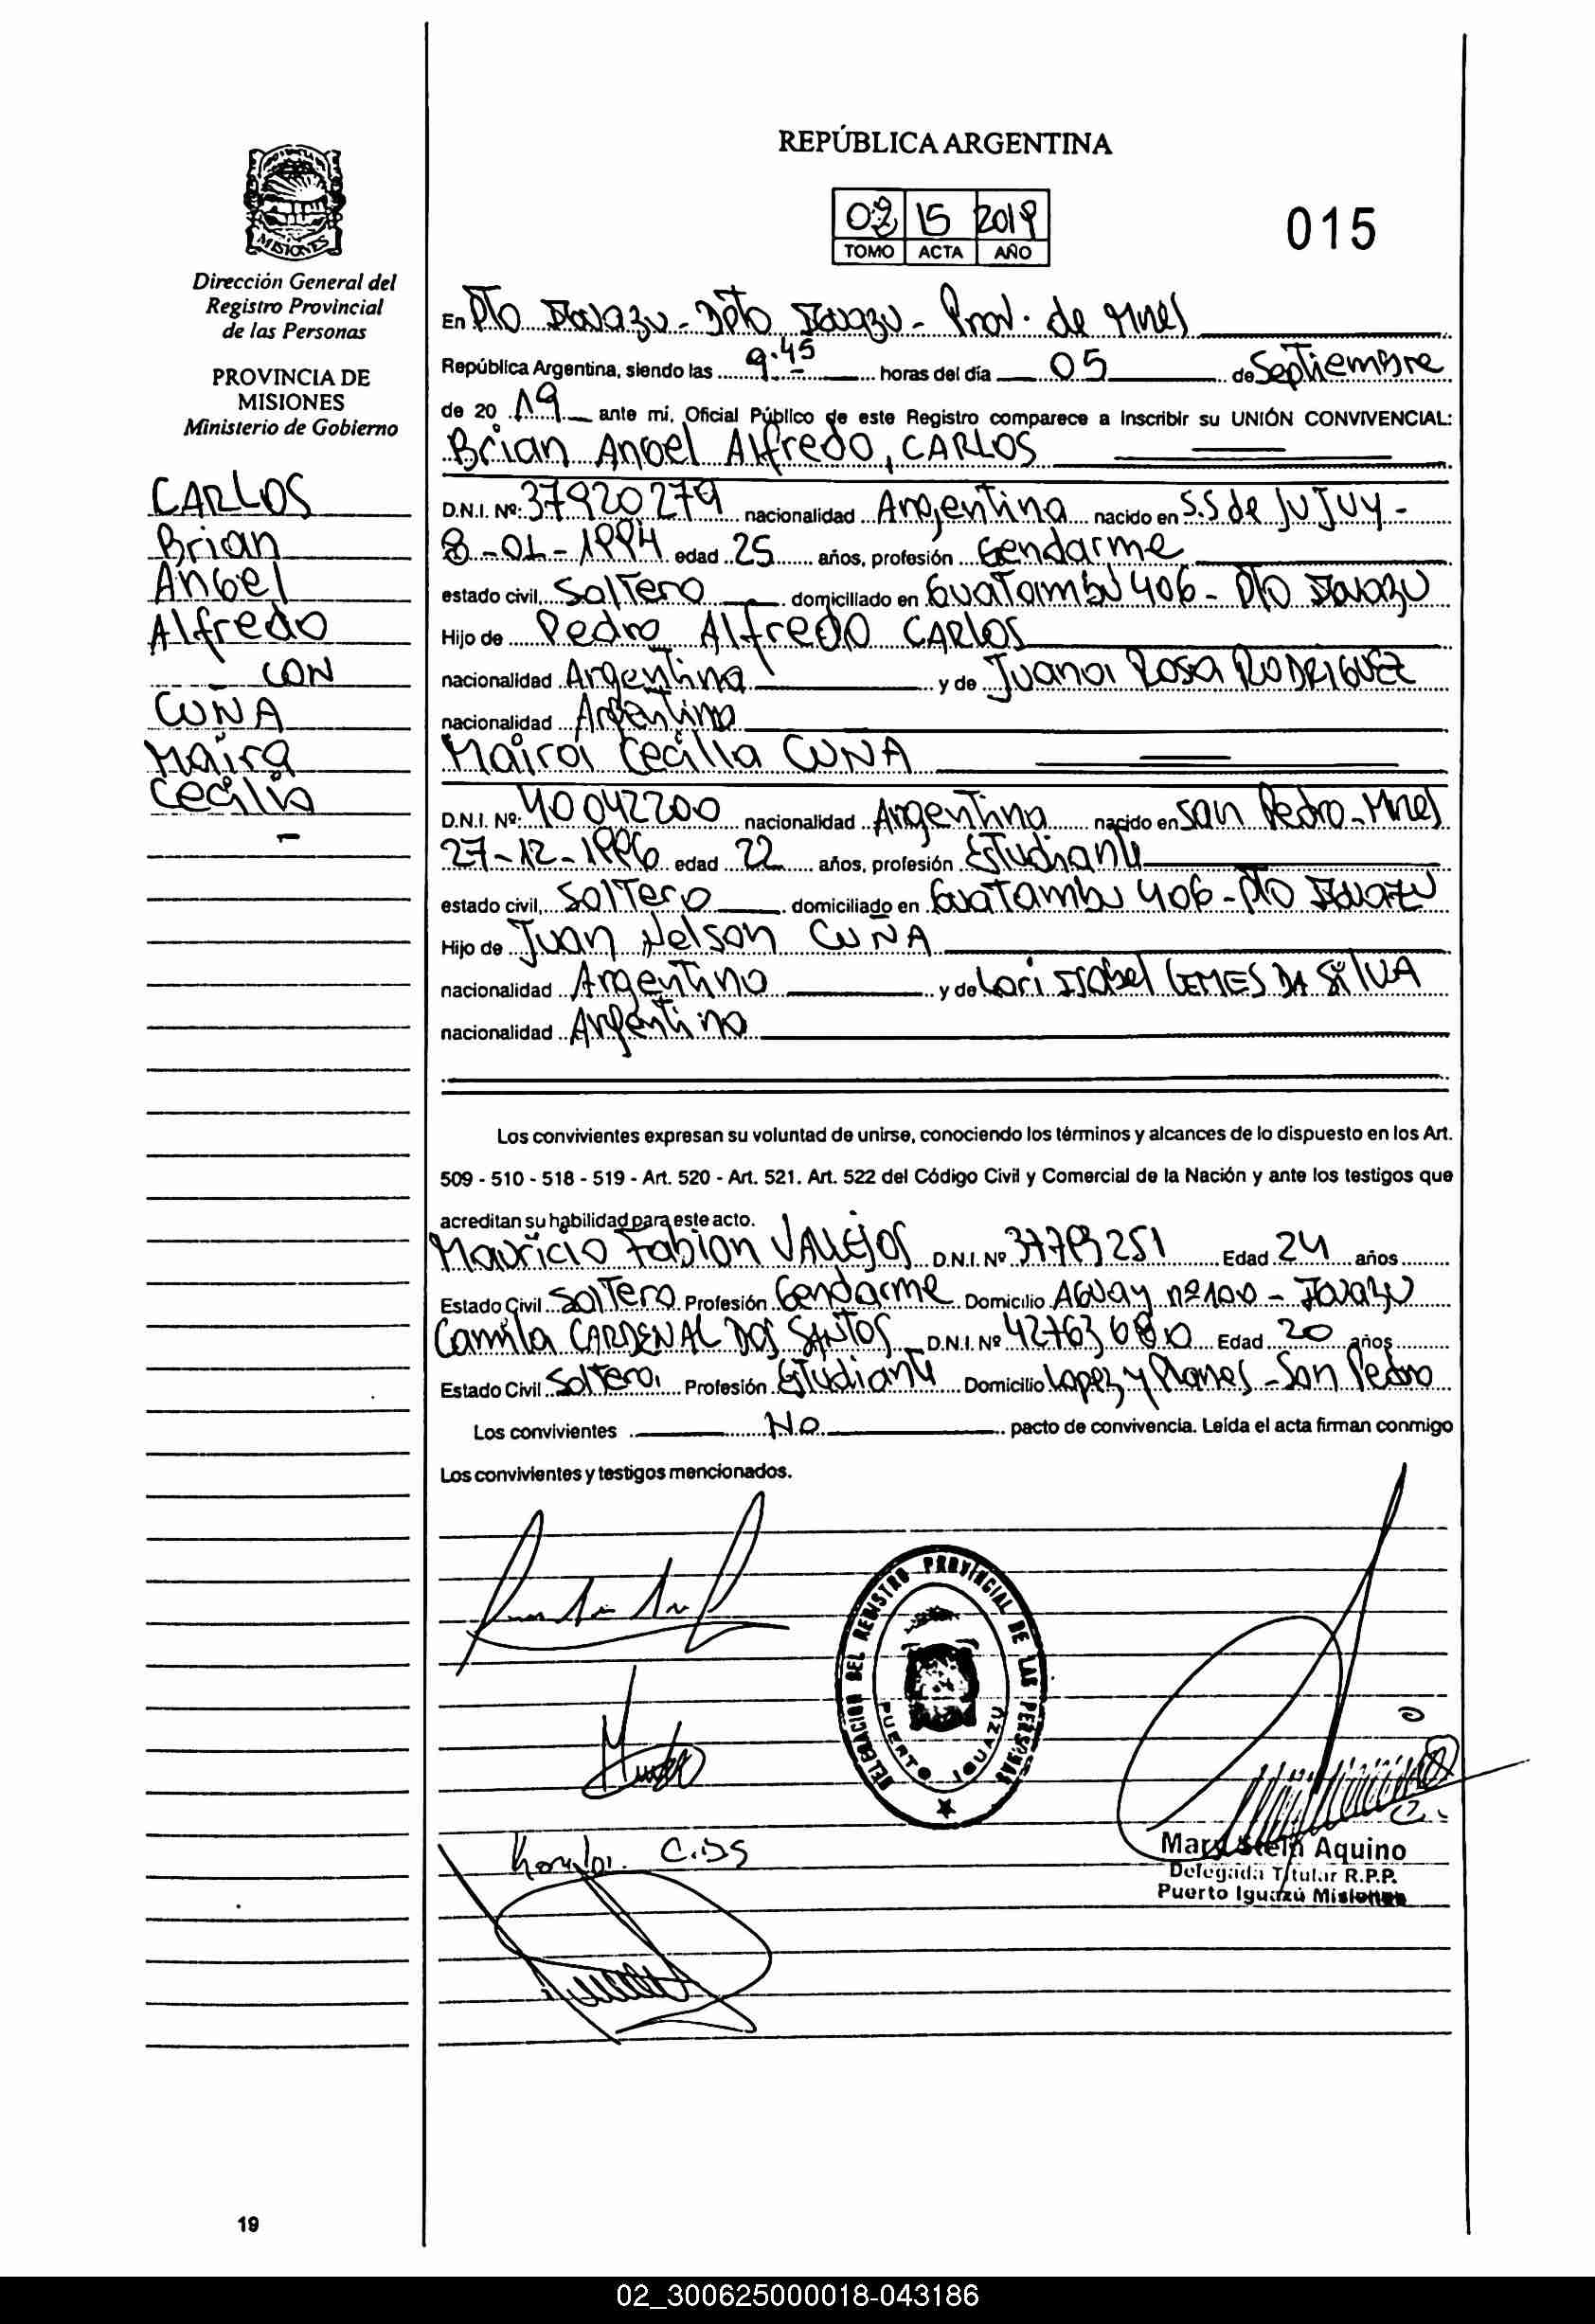 REPÚBLICA ARGENTINA
02 15 2019
TOMO ACTA AÑO
015
MISIONES
Dirección General del
Registro Provincial
de las Personas
PROVINCIA DE
MISIONES
Ministerio de Gobierno
CARLOS
Brian
Angel
Alfredo
CON
CUÑA
Maira
Cecilia
-
En Pto Iguazu - Dpto Iguazu - Prov. de Mnes
República Argentina, siendo las 9:45 horas del día 05 de Septiembre
de 20 19 ante mí, Oficial Público de este Registro comparece a Inscribir su UNIÓN CONVIVENCIAL:
Brian Angel Alfredo, CARLOS
D.N.I. Nº: 37920279 nacionalidad Argentina nacido en S.S de JuJuy -
8-01-1994 edad 25 años, profesión Gendarme
estado civil Soltero domiciliado en Guatambú 406 - Pto Iguazu
Hijo de Pedro Alfredo CARLOS
nacionalidad Argentina y de Juana Rosa RODRIGUEZ
nacionalidad Argentina
Maira Cecilia CUÑA
D.N.I. Nº: 40042200 nacionalidad Argentina nacido en San Pedro - Mnes
27-12-1996 edad 22 años, profesión Estudiante
estado civil Soltera domiciliado en Guatambu 406 - Pto Iguazu
Hijo de Juan Nelson CUÑA
nacionalidad Argentino y de Lori Isabel LEMES DA SILVA
nacionalidad Argentina
Los convivientes expresan su voluntad de unirse, conociendo los términos y alcances de lo dispuesto en los Art.
509 - 510 - 518 - 519 - Art. 520 - Art. 521. Art. 522 del Código Civil y Comercial de la Nación y ante los testigos que
acreditan su habilidad para este acto.
Mauricio Fabian VALLEJOS D.N.I. Nº Edad 24 años
Estado Civil Soltero Profesión Gendarme Domicilio Aguay nº100 - Iguazu
Camila CARDENAL DOS SANTOS D.N.I. Nº Edad 20 años
Estado Civil Soltera Profesión Estudiante Domicilio Lopez y Planes - San Pedro
Los convivientes No pacto de convivencia. Leída el acta firman conmigo
Los convivientes y testigos mencionados.
DELEGACION DEL REGISTRO PROVINCIAL DE LAS PERSONAS
PUERTO IGUAZU
C.DS
Aquino
Delegada Titular R.P.P.
Puerto Iguazú Misiones
19
02_300625000018-043186